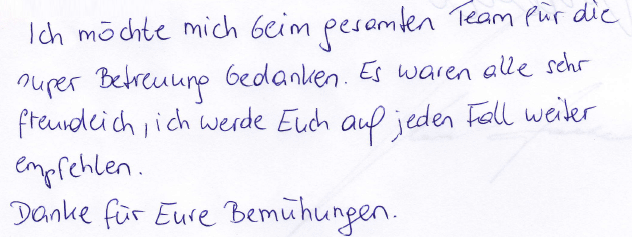 Ich möchte mich beim gesamten Team für die
super Betreuung bedanken. Es waren alle sehr
freundlich, ich werde Euch auf jeden Fall weiter
empfehlen.
Danke für Eure Bemühungen.